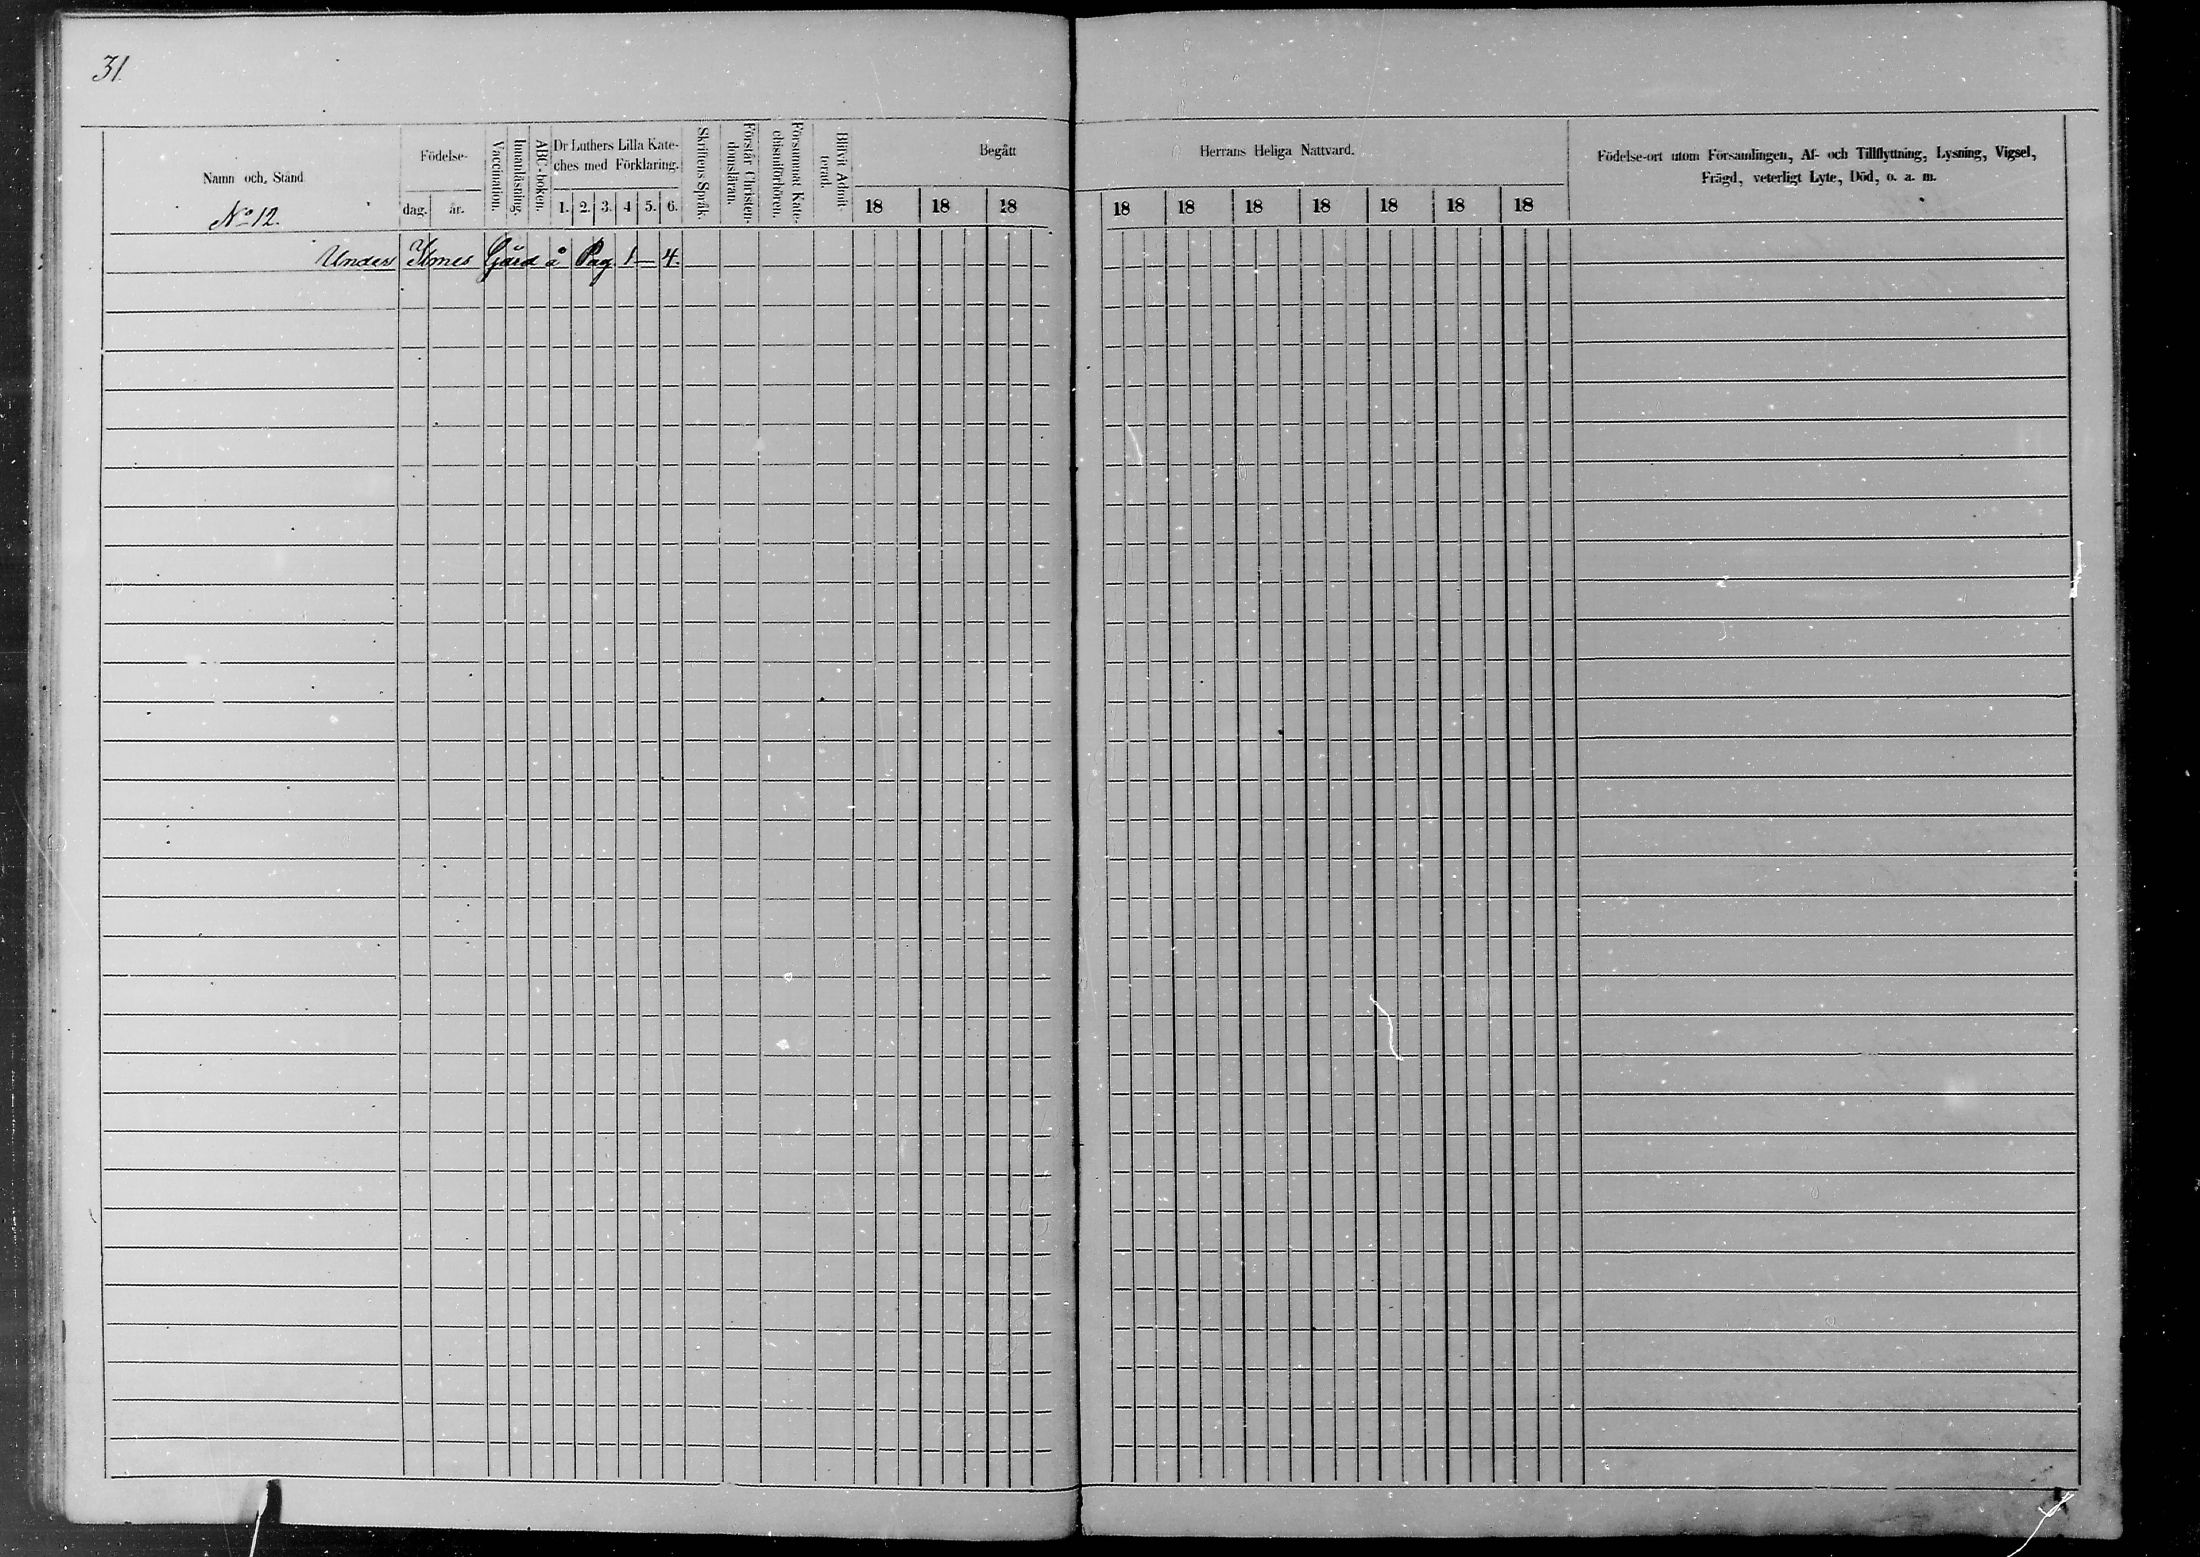 31
Namn och Stånd
Födelse-
dag. år.
Vaccination.
Innanläsning.
ABC-boken.
Dr Luthers Lilla Kate-
ches med Förklaring.
1. 2. 3. 4 5. 6.
Skriftens Språk.
Förstår Christen-
domsläran.
Försummat Kate-
chismiförhören.
Blifvit Admit-
terad.
Begått Herrans Heliga Nattvard.
18 18 18 18 18 18 18 18 18 18
Födelse-ort utom Församlingen, Af- och Tillflyttning, Lysning, Vigsel,
Frägd, veterligt Lyte, Död, o. a. m.
No 12.
Under Gård å Pag 1–4.